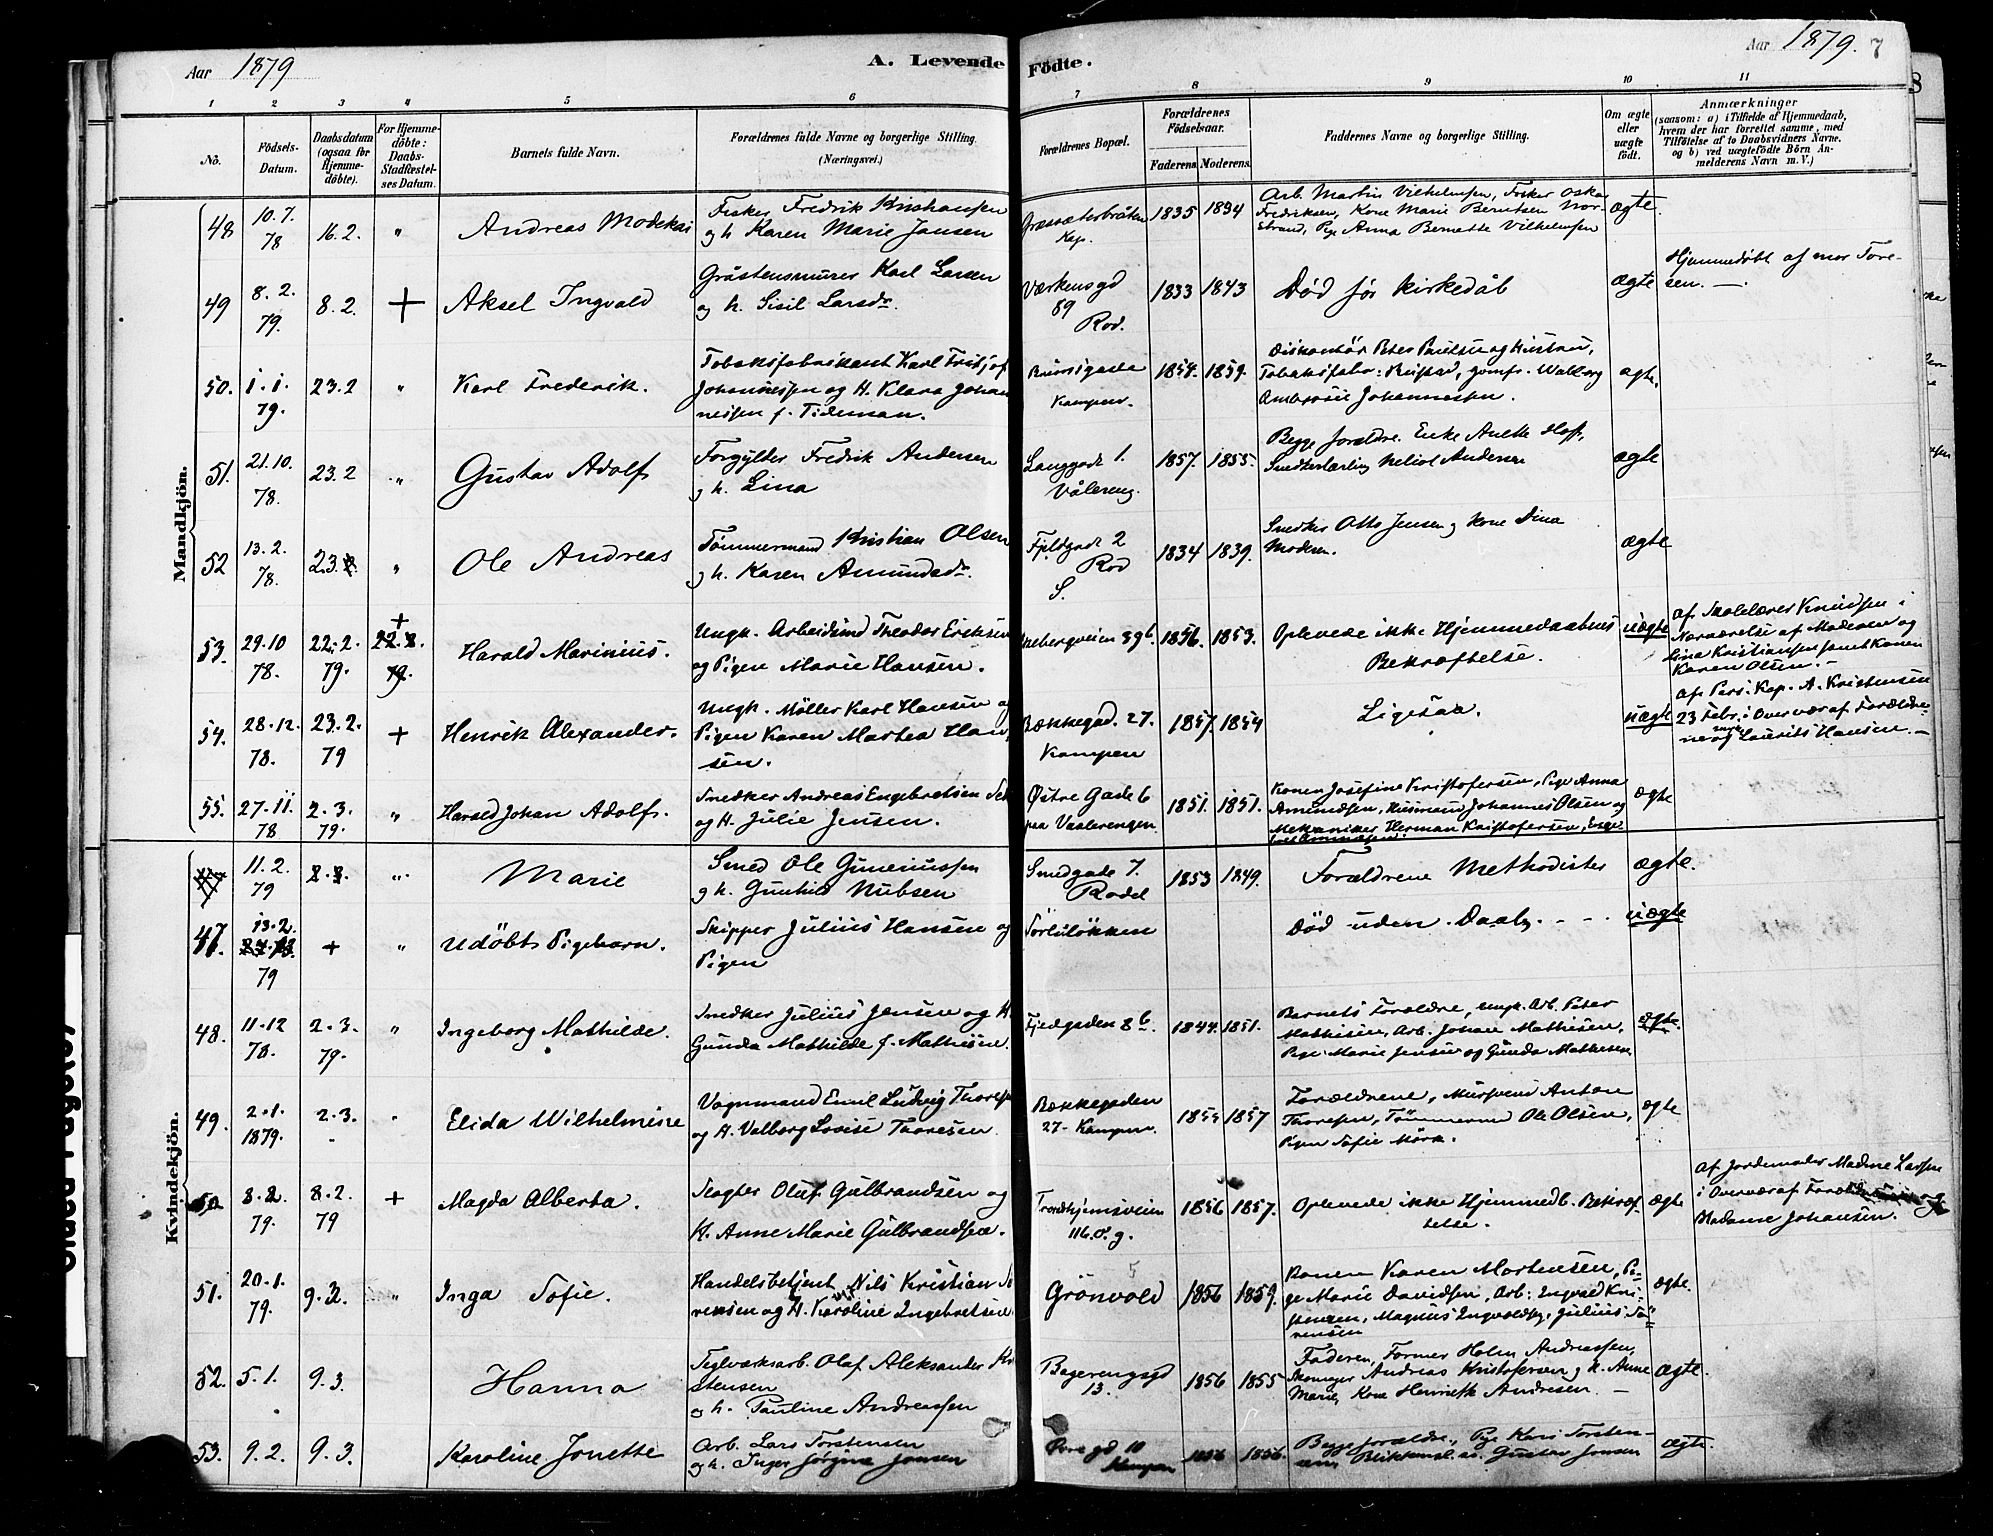 Aar 1879
A. Levende Födte.
Aar 1879. 7
8
1 2 3 4 5 6 7 8 9 10 11
No.
Födsels-Datum.
Daabsdatum (ogsaa for Hjemme-döbte).
For Hjemme-döbte: Daabs-Stadfæstel-ses Datum.
Barnets fulde Navn.
Forældrenes fulde Navne og borgerlige Stilling.
(Næringsvei.)
Forældrenes Bopæl.
Forældrenes Födselsaar.
Faderens. Moderens.
Faddernes Navne og borgerlige Stilling.
Om ægte eller uægte født.
Anmærkninger
(saasom: a) i Tilfælde af Hjemmedaab,
hvem der har forrettet samme, med
Tilföielse af to Daabsvidners Navne,
og b) ved uægtefödte Börn An-
melderens Navn m. V.)
Mandkjön.
48 10.7. 78 16.2. " Andreas Modekai
Fisker Fredrik Kristiansen
og h. Karen Marie Jansen
Græsæterbråten 1835 1834
Arb. Martin Vilhelmsen, Fisker Oskar
Fredriksen, Kone Marie Berntsen Nor-
strand, Pige Anna Bernette Vilhelmsen
ægte.
49 8.2. 79. 8.2. + Aksel Ingvald
Gråstensmurer Karl Larsen
og h. Sisil Larsdr.
Værkensgd 89 Rod. 1833 1843
Død før kirkedåb
ægte
Hjemmedøbt af mor Tore-
sen. —
50. 1.1. 79. 23.2 " Karl Frederik.
Tobaksfabrikant Karl Fritjof
Johannessen og H. Klara Johan
nessen f. Tideman.
Kampen. 1854. 1859.
Ambrosie Johannessen.
ægte.
51. 21.10. 78. 23.2 " Gustav Adolf
Forgylder Fredrik Andersen
og h. Lina
Langgade 1. Vålereng. 1857. 1855.
Begge forældre. Enke Anette Hoff,
Snedkerlærling Andersen
ægte
52 13.2. 78. 23.2. " Ole Andreas
Tömmermand Kristian Olsen
og h. Karen Amundsdr.
Fjeldgade 2 Rod S. 1834 1839.
Snedker Otto Jensen og kone Dina
Moderen.
ægte
53. 29.10 78. 22.2. 79. + 22.2. 79. Harald Marinius.
Ungk. Arbeidsmd Theodor Eriksen
og Pigen Marie Hansen.
Ekebergveien 39b. 1856. 1853.
Oplevede ikke Hjemmedaabens
Bekræftelse.
uægte
af Skolelærer Knudsen i
Nærværelse af Moderen og
Lina Kristiansen samt Konen
Karen Olsen. —
54. 28.12. 78. 23.2. 79 + Henrik Alexander.
Ungk. Möller Karl Hansen og
Pigen Karen Martea Han
sen.
Bækkegad. 27. Kampen 1857. 1854
Ligesaa.
uægte
af Pers. Kap. A. Kristensen
23 Febr. i Overvær af Forældre-
ne og Laurits Hansen. —
55. 27.11. 78 2.3. 79. " Harald Johan Adolf.
Snedker Andreas Engebretsen
og H. Julie Jensen.
Østre Gade 6 paa Vaalerengen 1851. 1851.
Konen Josefine Kristofersen, Pige Anna
Amundsen, Husmand Johannes Olsen og
Mekaniker Herman Kristofersen, Enge
ægte
Kvindekjön.
11.2. 79 " Marie
Smed Ole Guneriussen
og h. Gunhild Nubsen
Smedgade 7. Rodel 1853 1849.
Forældrene Methodister
ægte.
47. 13.2. 79 + " Udöbt Pigebarn.
Skipper Julius Hansen og
Pigen
Död uden Daab. - -
uægte
48. 11.12 78. 2.3. 79. " Ingeborg Mathilde.
Snedker Julius Jensen og H.
Gunda Mathilde f. Mathisen.
Fjeldgaden 8b. 1844. 1851.
Barnets Forældre, ungk. Arb. Peter
Mathisen, Arb. Johan Mathisen,
Pige Marie Jensen og Gunda Mathisen
ægte.
49. 2.1. 1879. 2.3. " Elida Wilhelmine
Vognmand Emil Ludvig Thoresen
og H. Valborg Lovise Thoresen
Bækkegaden 27 - Kampen. 1854 1857
Forældrene, Mursvend Anton
Thoresen, Tömmermd Ole Olsen,
Pigen Sofie Mörk.
ægte
50 8.2. 79. 8.2. 79 + Magda Alberta.
Slagter Oluf Gulbrandsen og
H. Anne Marie Gulbrandsen.
Trondhjemsveien 116. ö. g. 1856 1857.
Oplevede ikke Hjemmed. Bekræf-
telse.
ægte
af Jordemoder Madme Larsen
i Overvær af Forældrene og
Madame Johansen.
51. 20.1. 79. 9.2. " Inga Sofie.
Handelsbetjent Nils Kristian Sö
rensen og H. Karoline Ingebretsen
Grönvold 1856 1859.
Konen Karen Mortensen, Pi-
ge Marie Davidsen, Arb. Ingvald Kri-
stensen, Magnus Ingvaldsen, Julius Sö-
rensen
ægte.
52. 5.1. 9.3. Hanna
Teglværksarb. Olaf Aleksander Kri
stensen
og h. Pauline Andreassen
13. 1856 1855
Faderen, Former Holm Andreassen,
Andreas Kristofersen og h. Anne
Marie, Kone Henriette Andresen. —
ægte.
53. 9.2. 9.3. Karoline Jonette
Arb. Lars Torstensen
og h. Inger Jörgine Jonsen
10 Kampen 1856 1856.
Begge forældre, Pige Kari Torsten-
sen, Gustav Jonsen
ægte.